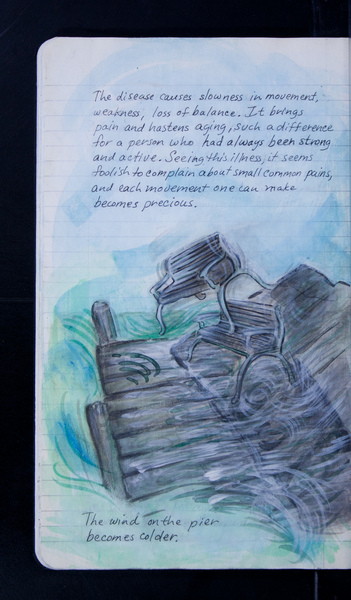 The disease causes slowness in movement,
weakness, loss of balance. It brings
pain and hastens aging, such a difference
for a person who had always been strong
and active. Seeing this illness, it seems
foolish to complain about small common pains,
and each movement one can make
becomes precious.
The wind on the pier
becomes colder.